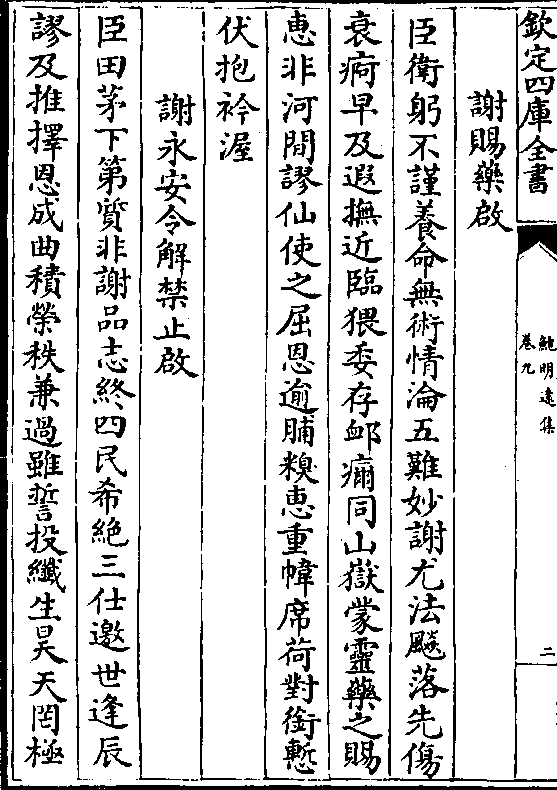 欽定四庫全書
鮑明遠集
卷九
二
謝賜藥啟
臣衛躬不謹養命無術情淪五難妙謝尤法飈落先傷
衰痾早及遐撫近臨猥委存䘏癘同山嶽蒙靈藥之賜
惠非河間謬仙使之屈恩逾脯糗惠重幃席荷對銜慙
伏抱衿渥
謝永安令解禁止啟
臣田茅下第質非謝品志終四民希絶三仕邀世逢辰
謬及推擇恩成曲積榮秩兼過雖誓投纎生昊天罔極